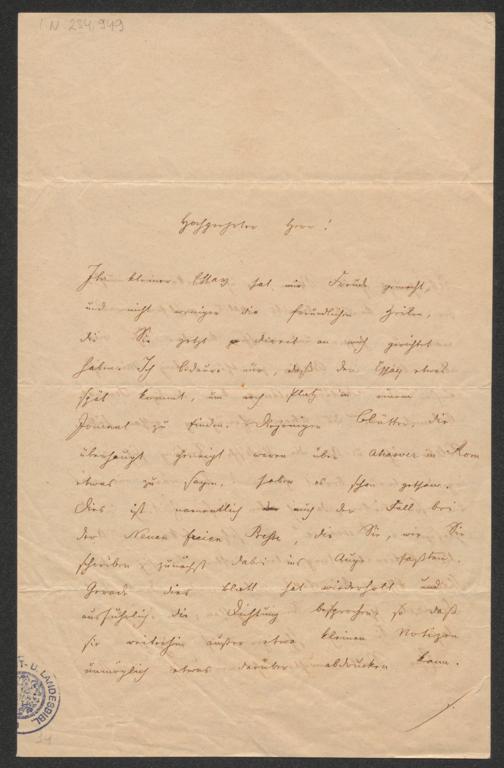 N. 234,949
Hochgeehrter Herr!
Ihr kleiner Essay hat mir Freude gemacht,
und nicht weniger die freundlichen Zeilen,
die Sie jetzt direct an mich gerichtet
haben. Ich bedaure nur, daß der Essay etwas
spät kommt, um noch Platz in einem
Journal zu finden. Diejenigen Blätter, die
überhaupt geneigt waren über Ahasver in Rom
etwas zu sagen, haben es schon gethan.
Dies ist namentlich auch der Fall bei
der Neuen freien Presse, die Sie, wie Sie
schreiben zunächst dabei ins Auge faßten.
Gerade dies Blatt hat wiederholt und
ausführlich die Dichtung besprochen, so daß
sie weiterhin außer etwa kleinen Notizen
unmöglich etwas darüber abdrucken kann.
T- U. LANDESBIBL